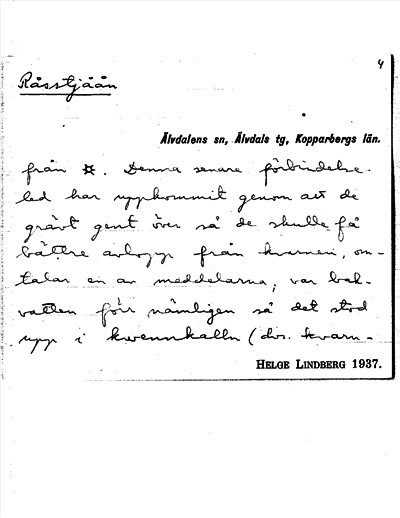 4
Råsstjåån
Älvdalens sn, Älvdals tg, Kopparbergs län.
från ¤. Denna senare förbindelse-
led har uppkommit genom att de
grävt gent över så de skulle få
bättre avlopp från kvarnen, om-
talar en av meddelarna, var bak-
vatten förr nämligen så det stod
upp i kwennkalln (dvs. kvarn-
HELGE LINDBERG 1937.